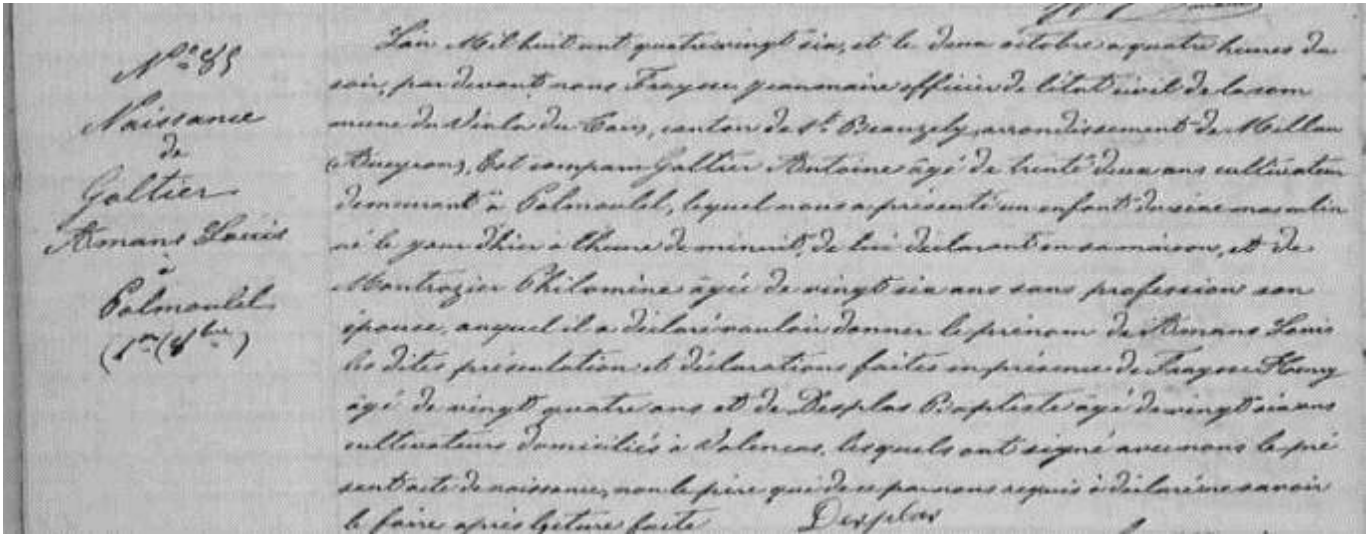 Nº 85
Naissance
de
Galtier
Amans Louis
à
Palmoulel
(1er 8bre)
L'an Mil huit cent quatre vingt six, et le deux octobre a quatre heures du
soir, par devant nous Fraysse Jean maire officier de l'état civil de la com
mune du Viala du Tarn, canton de St Beauzely arrondissement de Millau
(Aveyron), Est comparu Galtier Antoine âgé de trente deux ans cultivateur
demeurant à Palmoulel, lequel nous a présenté un enfant du sexe masculin
né le jour d'hier à l'heure de minuit, de lui déclarant en sa maison, et de
Montrozier Philomène âgée de vingt six ans sans profession son
épouse, auquel il a déclaré vouloir donner le prénom de Amans Louis
les dites présentation et déclarations faites en présence de Fraysse Henry
âgé de vingt quatre ans et de Desplas Baptiste âgé de vingt six ans
cultivateurs domiciliés à Valencas, lesquels ont signé avec nous le pré
sent acte de naissance, non le père qui de ce par nous requis à déclaré ne savoir
le faire après lecture faite Desplas